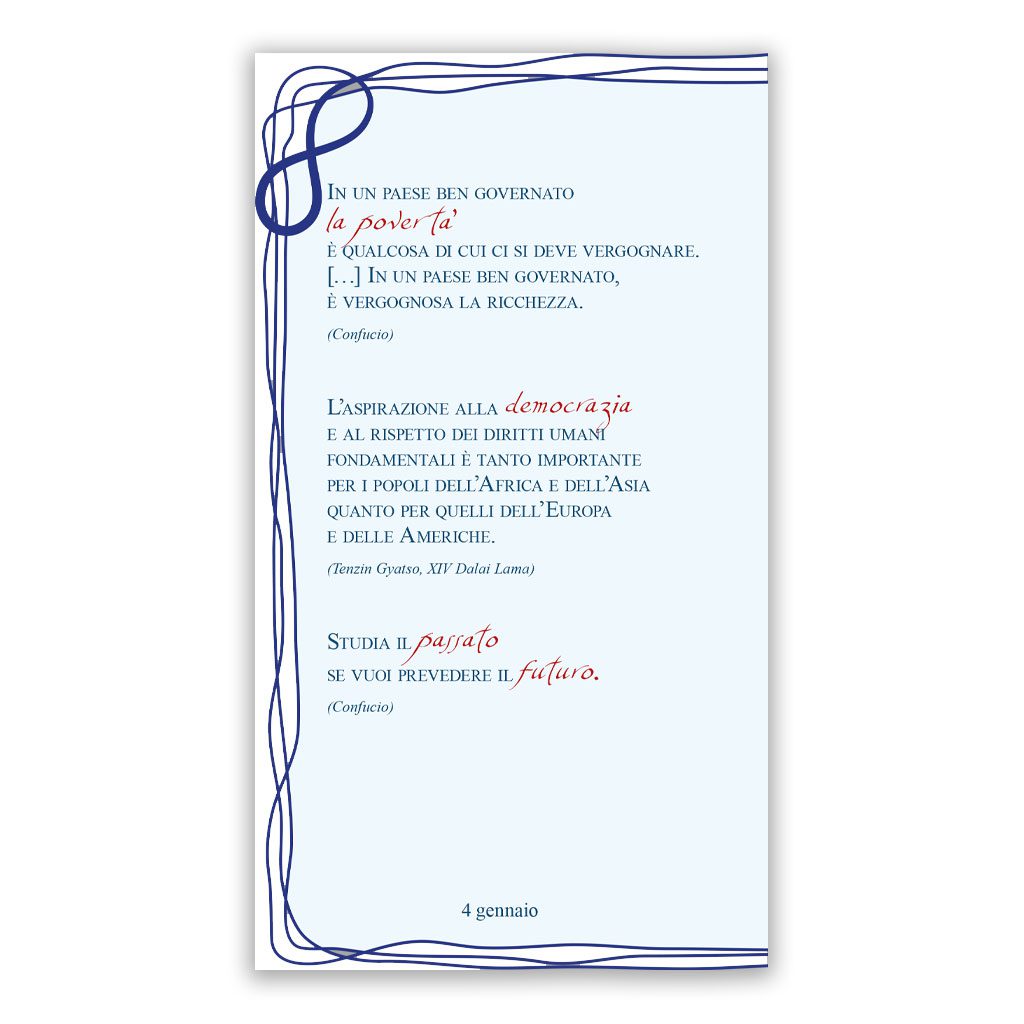 In un paese ben governato
la poverta'
è qualcosa di cui ci si deve vergognare.
[…] In un paese ben governato,
è vergognosa la ricchezza.
(Confucio)
L'aspirazione alla democrazia
e al rispetto dei diritti umani
fondamentali è tanto importante
per i popoli dell'Africa e dell'Asia
quanto per quelli dell'Europa
e delle Americhe.
(Tenzin Gyatso, XIV Dalai Lama)
Studia il passato
se vuoi prevedere il futuro.
(Confucio)
4 gennaio